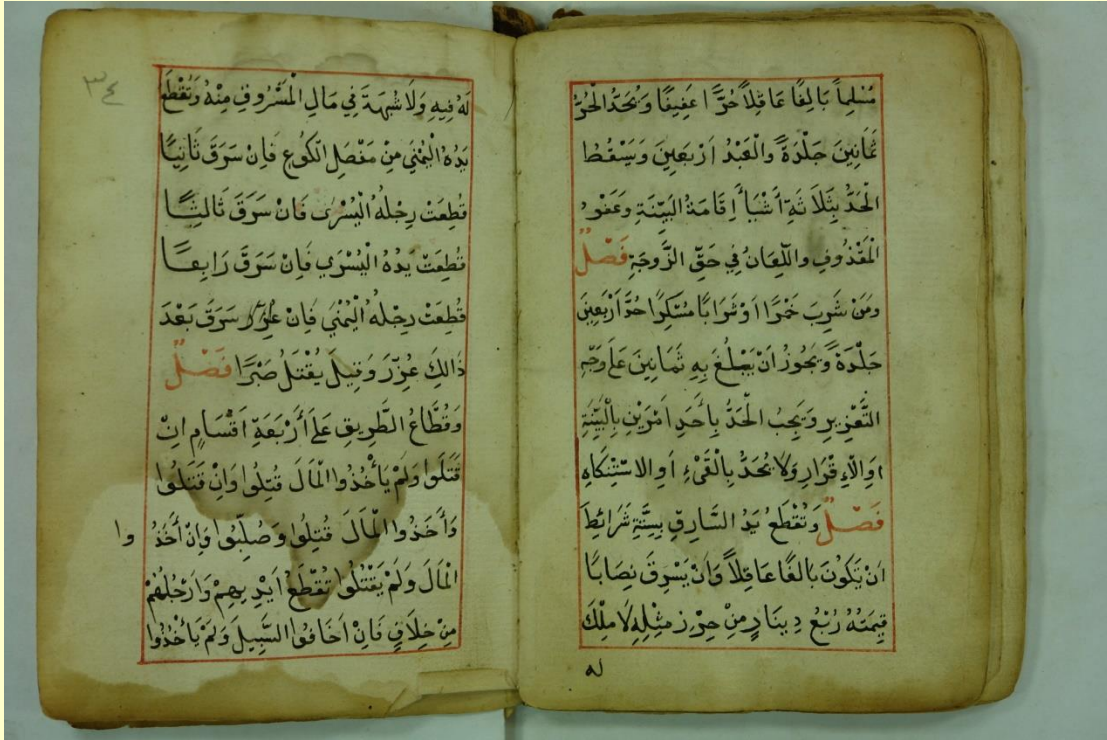 مُسْلِماً بَالِغًا عَاقِلًا حُرًّا عَفِيفًا وَيُحَدُّ الْحُرُّ
ثَمَانِينَ جَلْدَةً وَالْعَبْدُ اَرْبَعِينَ وَيَسْقُطُ
الْحَدُّ بِثَلَاثَةِ أَشْيَأَ إِقَامَةُ البَيِّنَةِ وَعَفْوُ
الْمَقْذُوفِ وَاللِّعَانُ فِي حَقِّ الزَّوجَةِ فَصْلٌ
وَمَنْ شَرِبَ خَمْرًا اَوْ شَرَابًا مُسْكِرًا حُدَّ اَرْبَعِينَ
جَلْدَةً وَيَجُوزُ اَنْ يَبْلُغَ بِهِ ثَمَانِينَ عَلَى وَجْهِ
التَّعْزِيرِ وَيَجِبُ الْحَدُّ بِأَحَدِ اَمْرَيْنِ بِالْبَيِّنَةِ
اوِالْاِقْرَارِ وَلَا يُحَدُّ بِالْقَيْءِ اَوِ الاسْتِنْكَاهِ
فَصْلٌ وَتُقْطَعُ يَدُ السَّارِقِ بِسِتَّةِ شَرَائِطَ
اَنْ يَكُونَ بَالغًا عَاقِلاً وَاَنْ يَسْرِقَ نِصَابًا
قِيمَتُهُ رُبْعُ دِينَارٍ مِنْ حِرْزِ مِثْلِهِ لَا مِلْكَ
له
٣٤
لَهُ فِيهِ وَلَا شُبْهَةَ فِي مَالِ الْمَسْرُوقِ مِنْهُ وَتُقْطَعُ
يَدُهُ الْيُمْنَي مِنْ مَفْصَلِ الْكُوعِ فَاِنْ سَرَقَ ثَانِيًا
قُطِعَتْ رِجْلُهُ الْيُسْرَى فَاِنْ سَرَقَ ثَالِثًا
قُطِعَتْ يَدُهُ الْيُسْرَي فَاِنْ سَرَقَ رَابِعًا
قُطِعَتْ رِجْلُهُ الْيُمْنَي فَاِنْ سَرَقَ بَعْدَ
ذَالِكَ عُزِّرَ وَقِيلَ يُقْتَلُ صَبْرًا فَصْلٌ
وَقُطَّاعُ الطَّرِيقِ عَلَى أَرْبَعَةِ اَقْسَامٍ اِنْ
قَتَلُوا وَلَمْ يَأْخُذُوا الْمَالَ قُتِلُوا وَاِنْ قَتَلُوا
وَأَخَذُوا الْمَالَ قُتِلُوا وَصُلِّبُوا وَاِنْ أَخَذُ وا
الْمَالَ وَلَمْ يَقْتُلُوا تُقْطَعُ اَيْدِيهِمْ وَاَرْجُلُهُمْ
مِنْ خِلَافٍ فَاِنْ اَخَافُوا السَّبِيلَ وَلَمْ يَأْخُذُوا